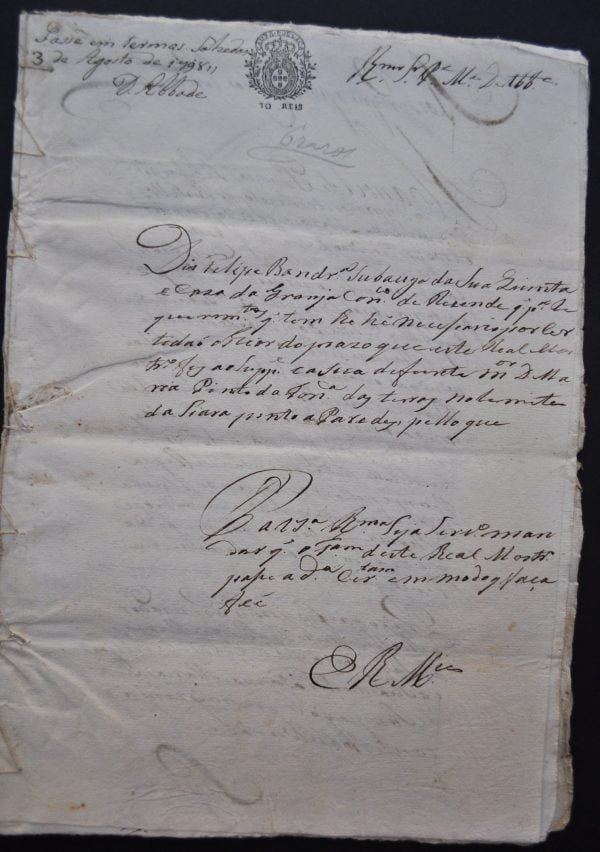 Passe em termos. Salzedas
3 de Agosto de 1798 //
D. Abbade
10 REIS
Rmo Sr. De Me D. Abbe
Prazo
Dis Felipe Bandra Subauga da Sua Quinta
e Caza da Granja Conco de Rezende q pa Re
querimtos q tem lhe hé Necessario por Cer
tidaõ o theor do prazo que este Real Mos
tro fez ao Suppe e a sua defunta mer D. Ma
ria Pinto da Fonca das terras no lemite
da Seara junto a Paredes, pello que
P. a V. Sa Rma Seja Servo man
dar q o Tam deste Real Mostro
passe a da Certam em modo q faça
feé
E R Mce